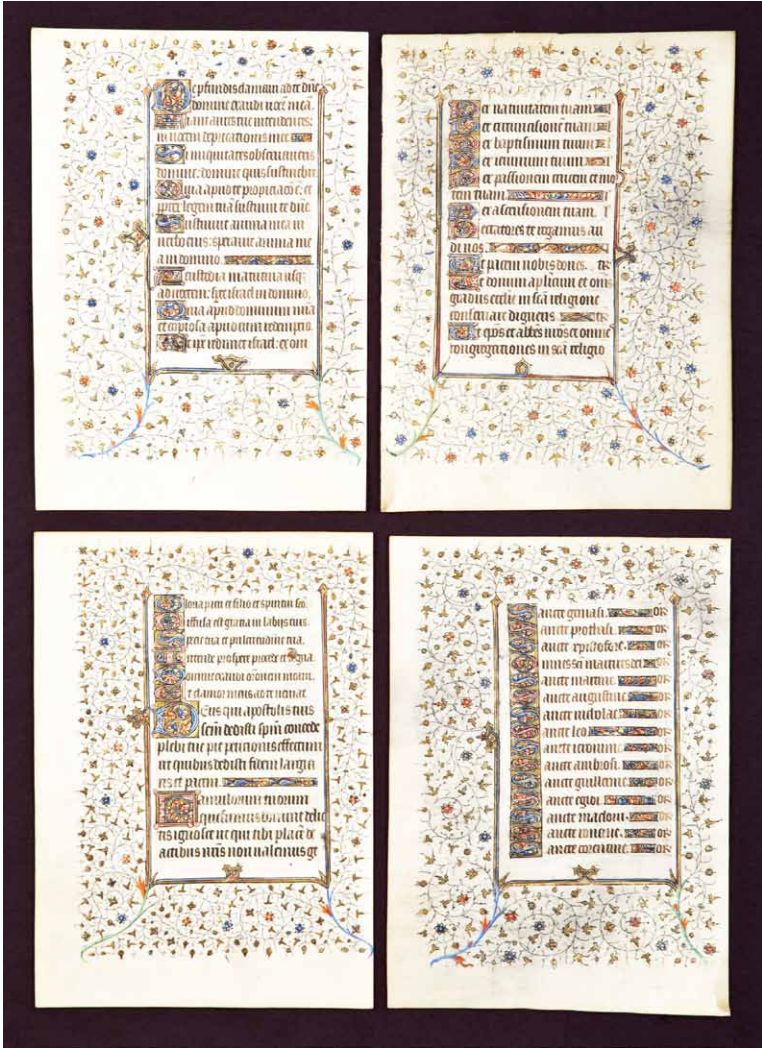 De pfundis clamaui ad te dñe
domine exaudi uocē meā.
Fiant aures tue intendentes:
in uocem depcationis mee
Si iniquitates obseruaueris
domine: domine quis sustinebit
Quia apud te propiciacio ē: et
ppter legem tuā sustinui te dñe
Sustinuit anima mea in
uerbo eius: sperauit anima me
a in domino.
A custodia matutina usq;
ad noctem: speret israel in domino.
Quia apud dominum mīa
et copiosa apud eum redemptio.
Et ipē redimet israel: ex omī
Per natiuitatem tuam
Per circuncisionē tuam
Per baptismum tuum
Per ieiunium tuum
Per passionem crucem et mor
tem tuam
Per ascensionem tuam.
Peccatores te rogamus au
di nos.
Ut pacem nobis dones. tR
Ut domnum aplicum et omīs
gradus ecclīe in scā religione
conseruare digneris tR
Ut ep̄os et abb̄es nros et omnē
congregationes in scā religio
Gloria patri et filio et spiritui sco.
Diffusa est gratia in labiis tuis.
Specie tua et pulcritudine tua.
Intende prospere procede et regna
Domine exaudi orōnem meam.
Et clamor meus ad te ueniat
Deus qui apostolis tuis
scm dedisti spm concede
plebi tue pie peticionis effectum
ut quibus dedisti fidem largia
ris et pacem.
Famulorum tuorum
quesumus domine delic
tis ignosce ut qui tibi placē de
actibus nris non ualemus ge
Sancte geruasi. or
Sancte prothasi. or
Sancte xpistofore. or
Omnes sci martires dei or
Sancte martine or
Sancte augustine. or
Sancte nicolae or
Sancte leo or
Sancte ieronime. or
Sancte ambrosi. or
Sancte guillerme. or
Sancte egidi. or
Sancte macloui. or
Sancte iouenc. or
Sancte corentine. or